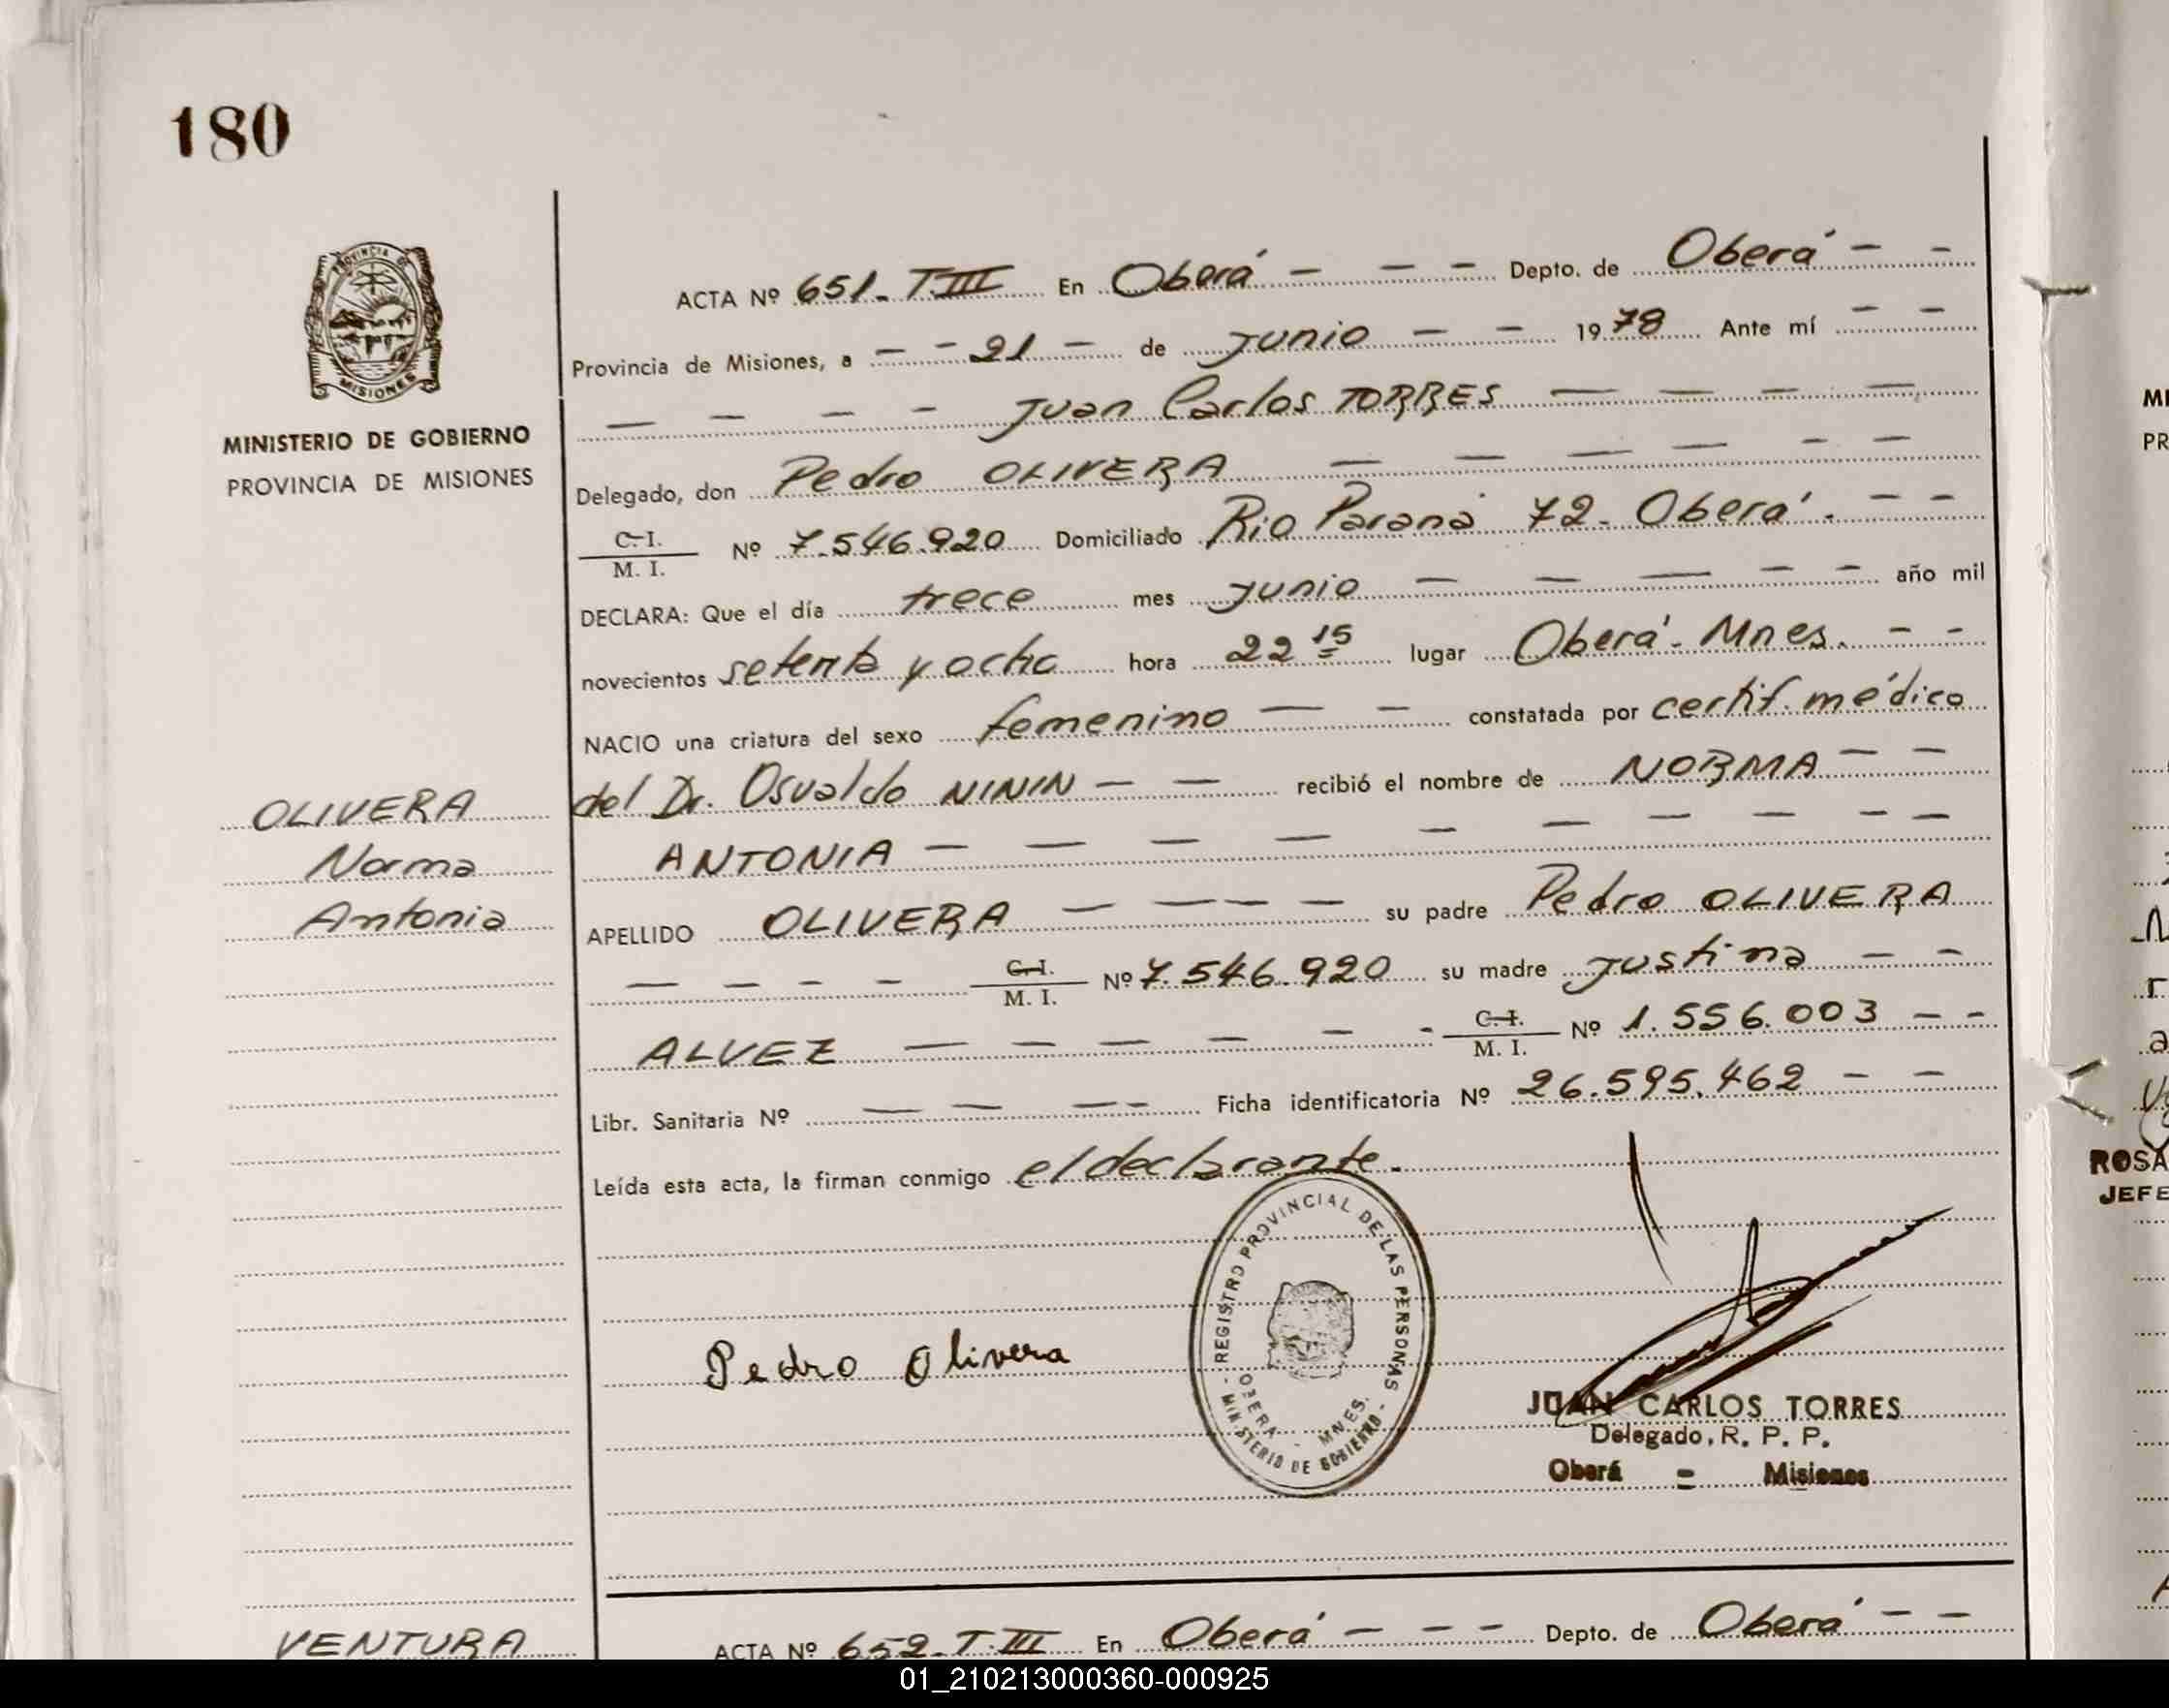 180
PROVINCIA DE
MISIONES
MINISTERIO DE GOBIERNO
PROVINCIA DE MISIONES
OLIVERA
Norma
Antonia
ACTA Nº 651-T.III En Oberá - - - Depto. de Oberá - -
Provincia de Misiones, a - - 21 - de Junio - - 1978 Ante mí - -
- - - - Juan Carlos TORRES - - - -
Delegado, don Pedro OLIVERA - - - - - -
C.I.
M. I. Nº 7.546.920 Domiciliado Rio Paraná 72- Oberá. - -
DECLARA: Que el día trece mes Junio - - - - - año mil
novecientos setenta y ocho hora 22 15 lugar Oberá- Mnes. - -
NACIO una criatura del sexo femenino - - constatada por certif. médico
del Dr. Osvaldo NININ - - recibió el nombre de NORMA - -
ANTONIA - - - - - - - - - -
APELLIDO OLIVERA - - - - su padre Pedro OLIVERA
- - - - C.I.
M. I. Nº 7.546.920 su madre Justina - -
ALVEZ - - - - - - C.I.
M. I. Nº 1.556.003 - -
Libr. Sanitaria Nº - - - - Ficha identificatoria Nº 26.595.462 - -
Leída esta acta, la firman conmigo el declarante.
- REGISTRO PROVINCIAL DE LAS PERSONAS
OBERA - MNES.
- MINISTERIO DE GOBIERNO -
Pedro Olivera
JUAN CARLOS TORRES
Delegado, R. P. P.
Oberá - Misiones
VENTURA
ACTA Nº 652-T.III En Oberá - - - Depto. de Oberá - -
MI
PR
ROSA
JEFE
01_210213000360-000925